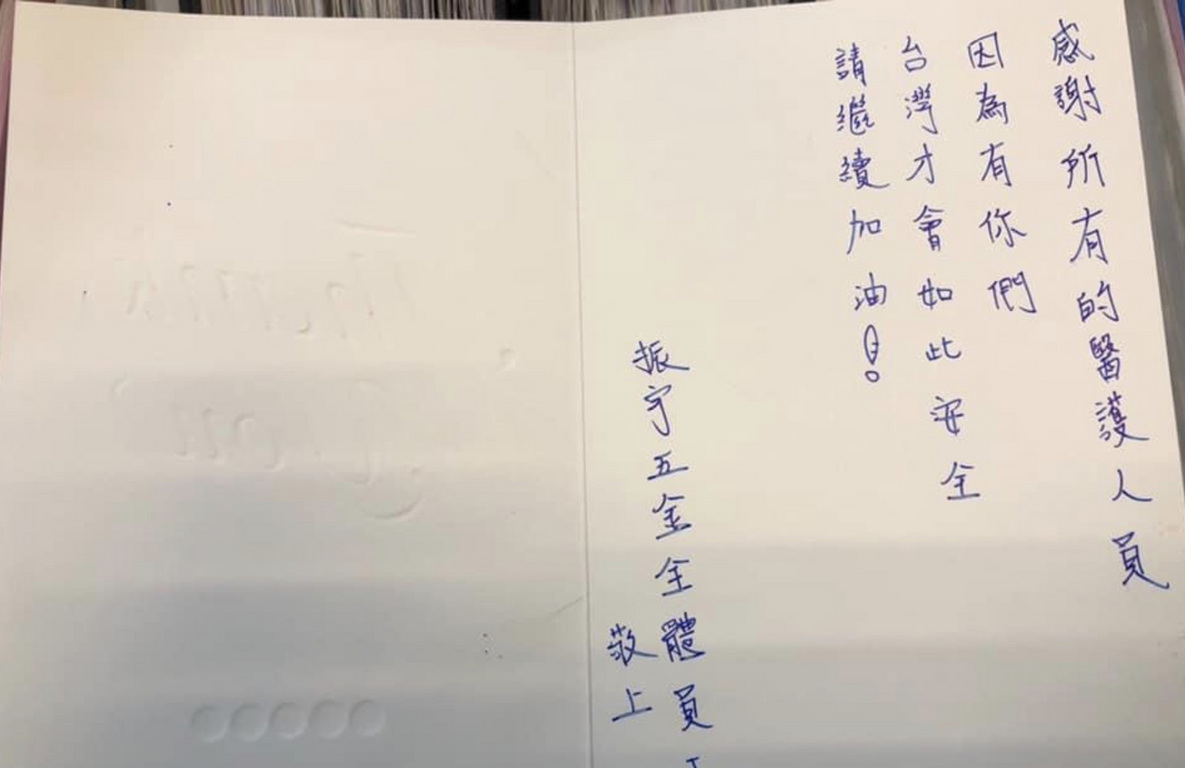 感謝所有的醫護人員
因為有你們
台灣才會如此安全
請繼續加油！
振宇五金全體員工
敬上